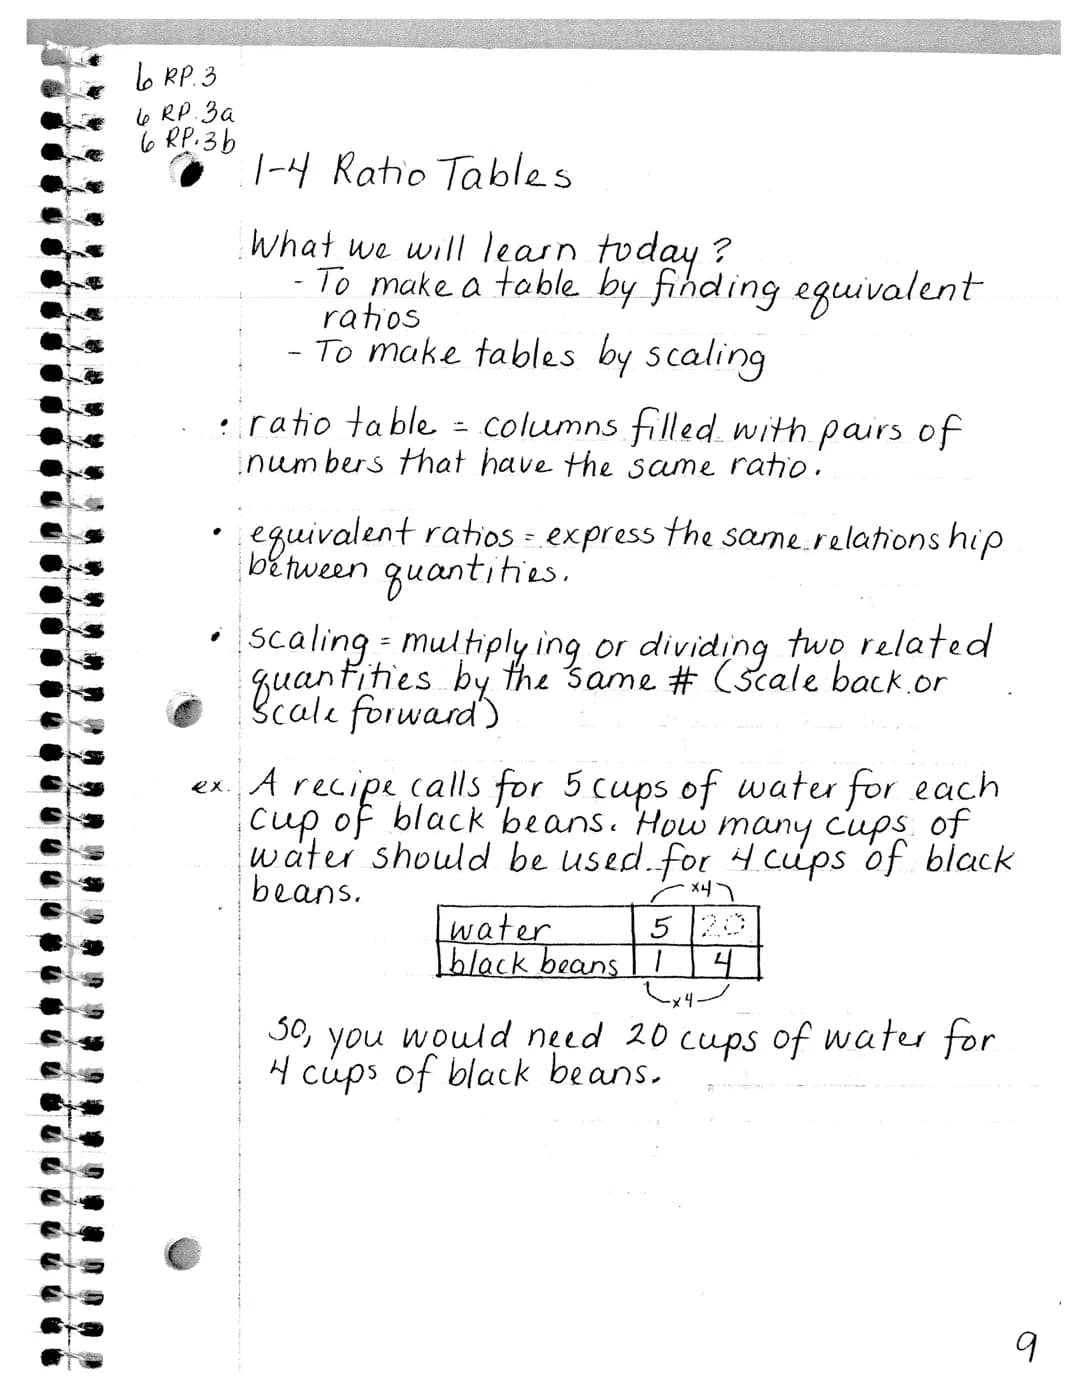 6 RP.3
6 RP.3a
6 RP.3b
1-4 Ratio Tables
What we will learn today?
- To make a table by finding equivalent
ratios
- To make tables by scaling
• ratio table = columns filled with pairs of
numbers that have the same ratio.
• equivalent ratios = express the same relationship
between quantities.
• scaling = multiplying or dividing two related
quantities by the same # (scale back or
scale forward)
ex. A recipe calls for 5 cups of water for each
cup of black beans. How many cups of
water should be used for 4 cups of black
beans.
x4
water 5 20
black beans 1 4
x4
So, you would need 20 cups of water for
4 cups of black beans.
9